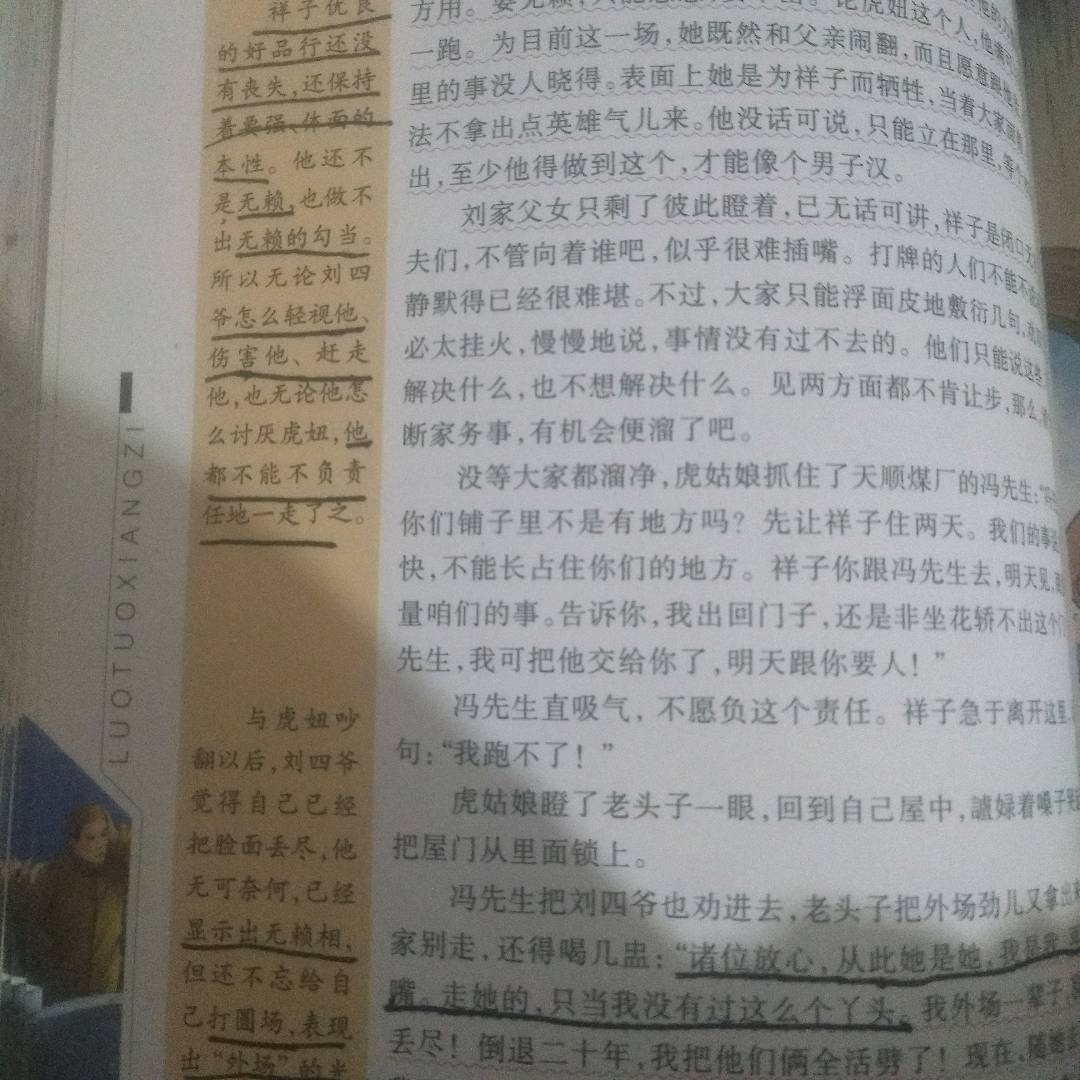 祥子优良
的好品行还没
有丧失,还保持
着要强、体面的
本性。他还不
是无赖,也做不
出无赖的勾当。
所以无论刘四
爷怎么轻视他、
伤害他、赶走
他,也无论他怎
么讨厌虎妞,他
都不能不负责
任地一走了之。
与虎妞吵
翻以后,刘四爷
觉得自己已经
把脸面丢尽,他
无可奈何,已经
显示出无赖相,
但还不忘给自
己打圆场,表现
出“外场”的光
LUOTUOXIANGZI
虎妞这个人,他
一跑。为目前这一场,她既然和父亲闹翻,而且愿意跟他
里的事没人晓得。表面上她是为祥子而牺牲,当着大家面前
法不拿出点英雄气儿来。他没话可说,只能立在那里,等个
出,至少他得做到这个,才能像个男子汉。
刘家父女只剩了彼此瞪着,已无话可讲,祥子是闭口无
夫们,不管向着谁吧,似乎很难插嘴。打牌的人们不能不
静默得已经很难堪。不过,大家只能浮面皮地敷衍几句,
必太挂火,慢慢地说,事情没有过不去的。他们只能说这些
解决什么,也不想解决什么。见两方面都不肯让步,那么,
断家务事,有机会便溜了吧。
没等大家都溜净,虎姑娘抓住了天顺煤厂的冯先生:“
你们铺子里不是有地方吗?先让祥子住两天。我们的事
快,不能长占住你们的地方。祥子你跟冯先生去,明天见,
量咱们的事。告诉你,我出回门子,还是非坐花轿不出这个
先生,我可把他交给你了,明天跟你要人!”
冯先生直吸气,不愿负这个责任。祥子急于离开这里,
句:“我跑不了!”
虎姑娘瞪了老头子一眼,回到自己屋中,着嗓子
把屋门从里面锁上。
冯先生把刘四爷也劝进去,老头子把外场劲儿又拿出
家别走,还得喝几盅:“诸位放心,从此她是她,我是我,
嘴。走她的,只当我没有过这么个丫头。我外场一辈子,
丢尽!倒退二十年,我把他们俩全活劈了!现在,随她